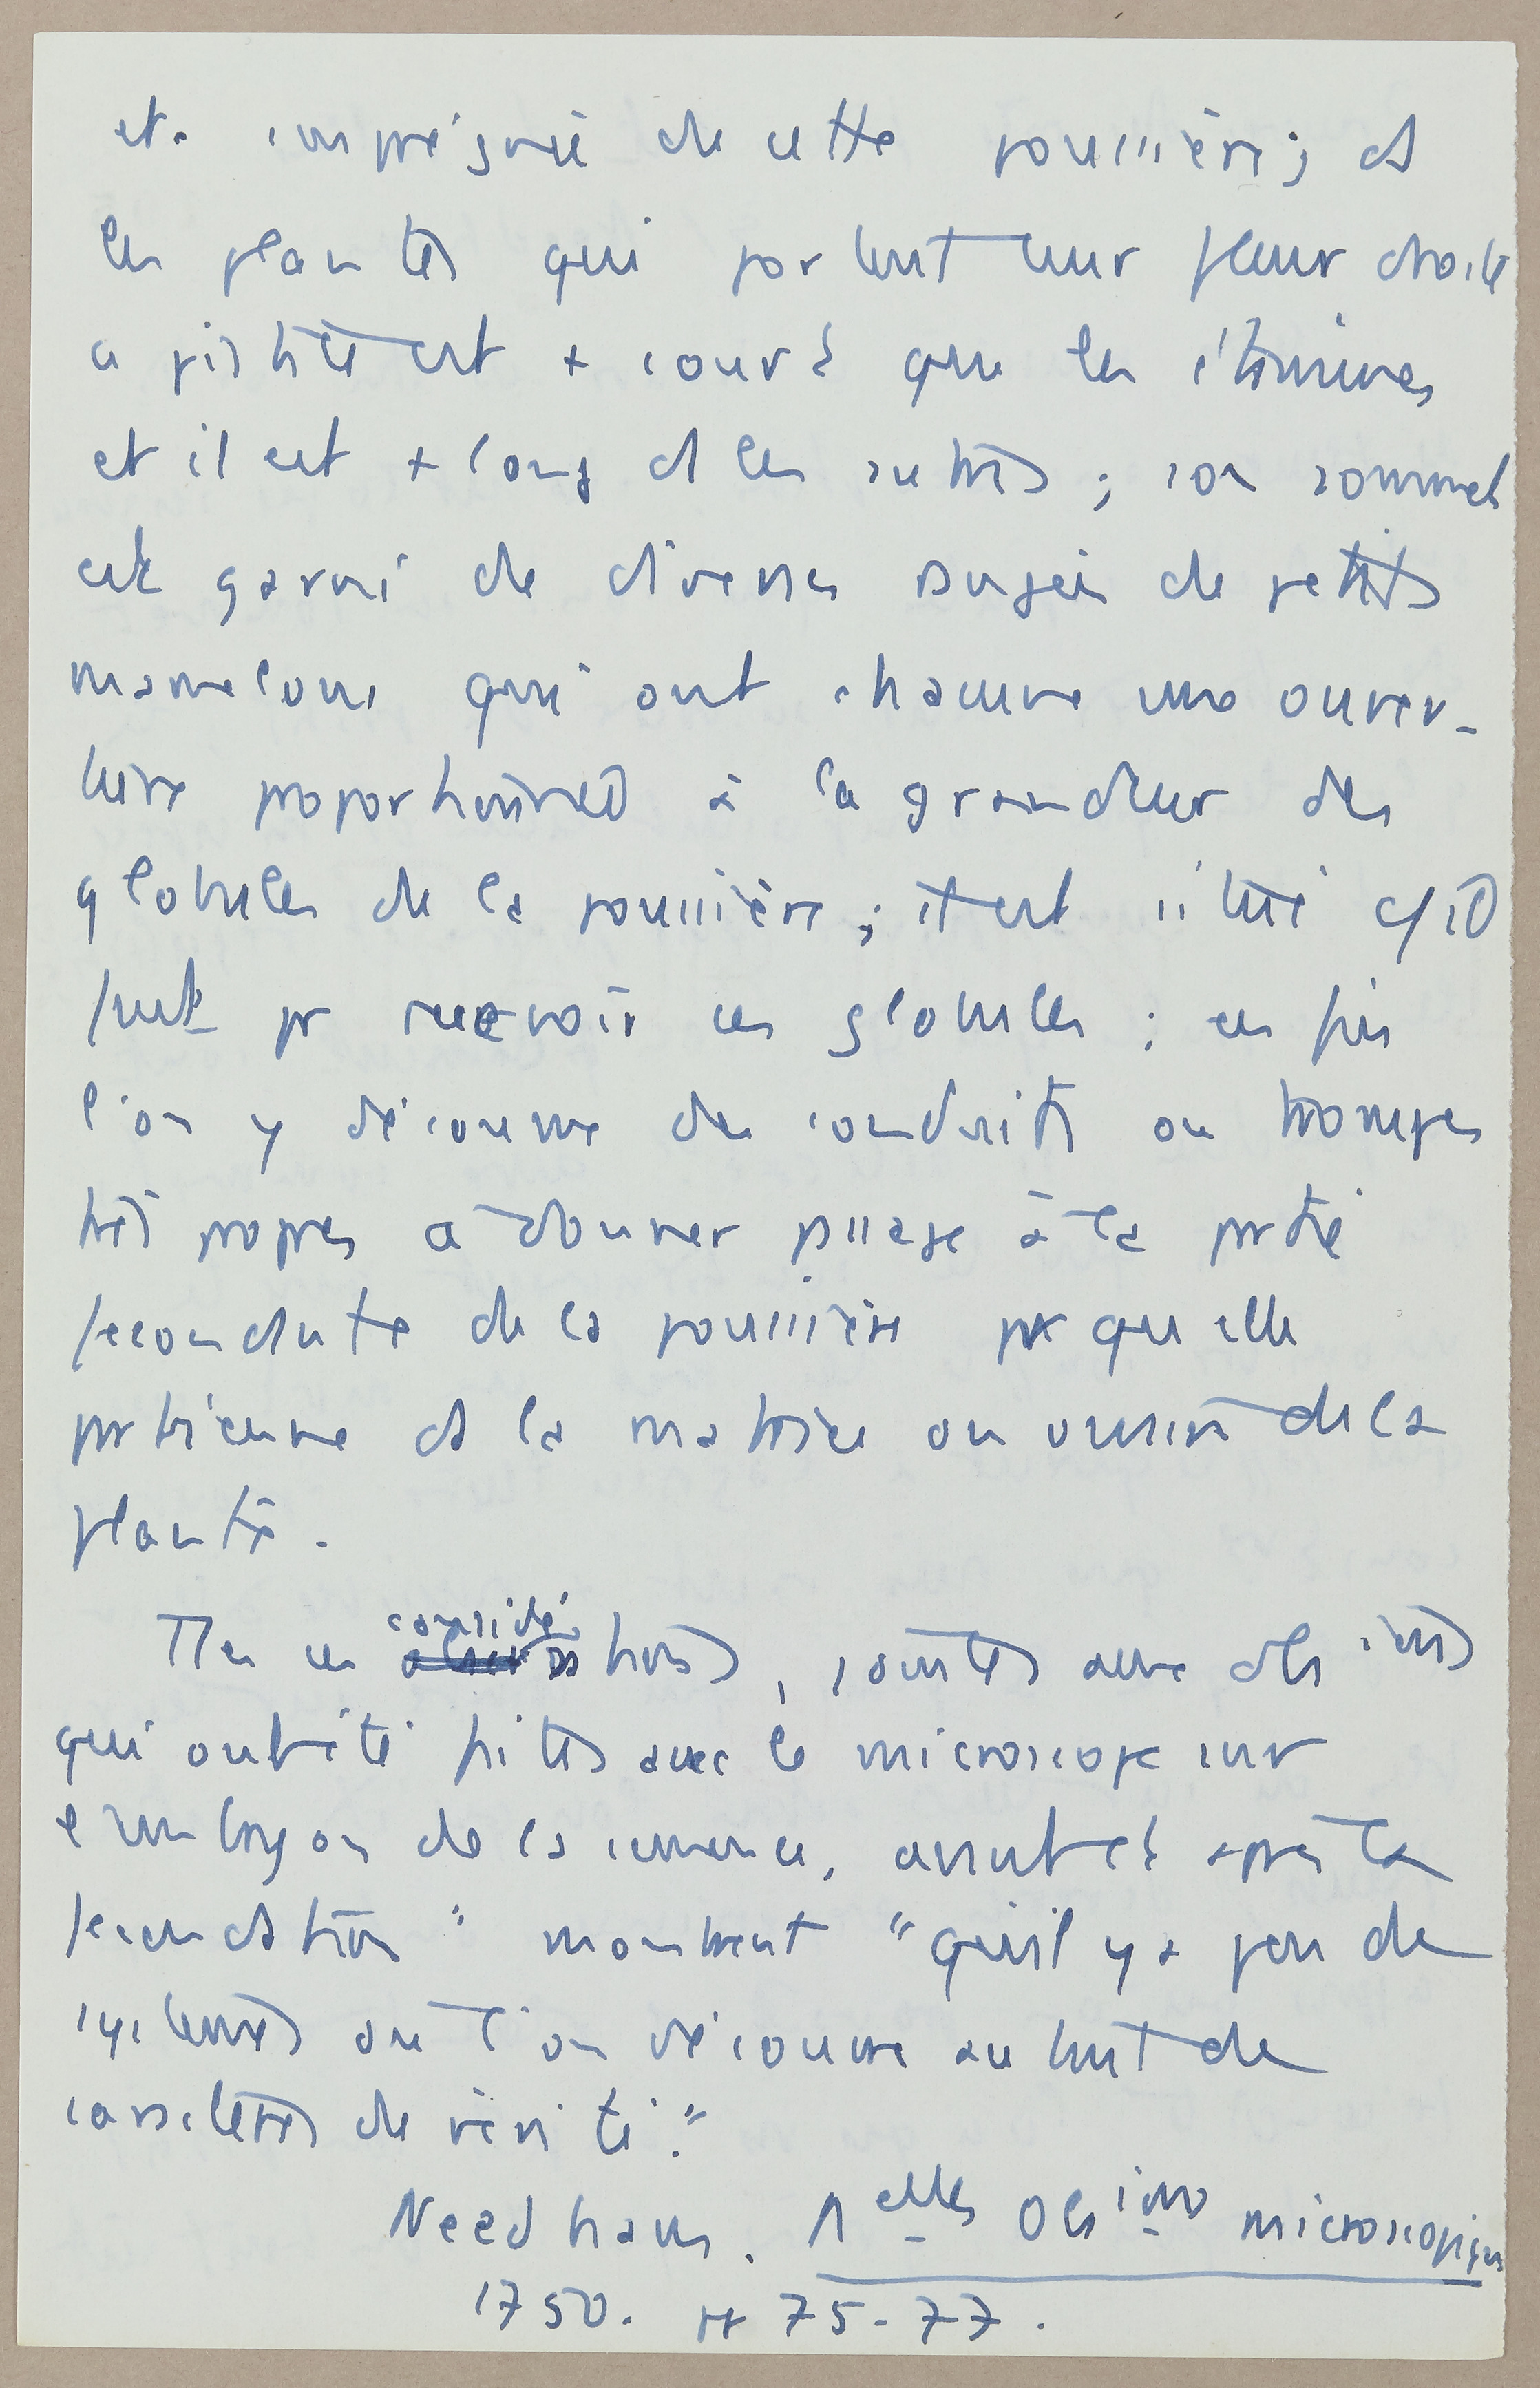 et imprégnée de cette poussière ; ds
les plantes qui portent leur fleur droite
a pistile est + court que les étamines
et il est + long ds les autres ; son sommet
est garni de diverses rangées de petits
mamelons qui ont chacune une ouver-
ture proportionnée à la grandeur des
globules de la poussière ; il est situé
pr recevoir ces globules ; enfin
l'on y découvre des conduits ou trompes
très propres à donner passage à la partie
fécondante de la poussière pr qu'elle
parvienne ds la matrice ou ovaire de la
plante.
Ttes ces considérations, jointes avec des ions
qui ont été faites avec le microscope sur
l'embryon de la semence, avant et après la
fécondation " montrent "qu'il y a peu de
systèmes où l'on découvre autant de
caractères de vérité."
Needham. Nelles Obsions microscopiques
1750. pp 75-77.